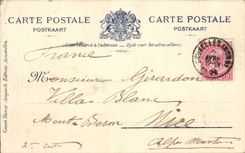 CARTE POSTALE
POSTKAART
CARTE POSTALE
POSTKAART
Côté réservé à l'adresse. — Zijde voor het adres alleen.
France
Monsieur Girardon
Villa Blanc
Mont Boron Nice
Alpes Maritimes
2me carte
Grand Bazar Anspach Editeur, Bruxelles.